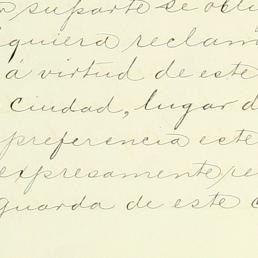 suporte se obli
quiera reclam
á virtud de este
ciudad, lugar d
preferencia este
expresamente re
guarda de este c